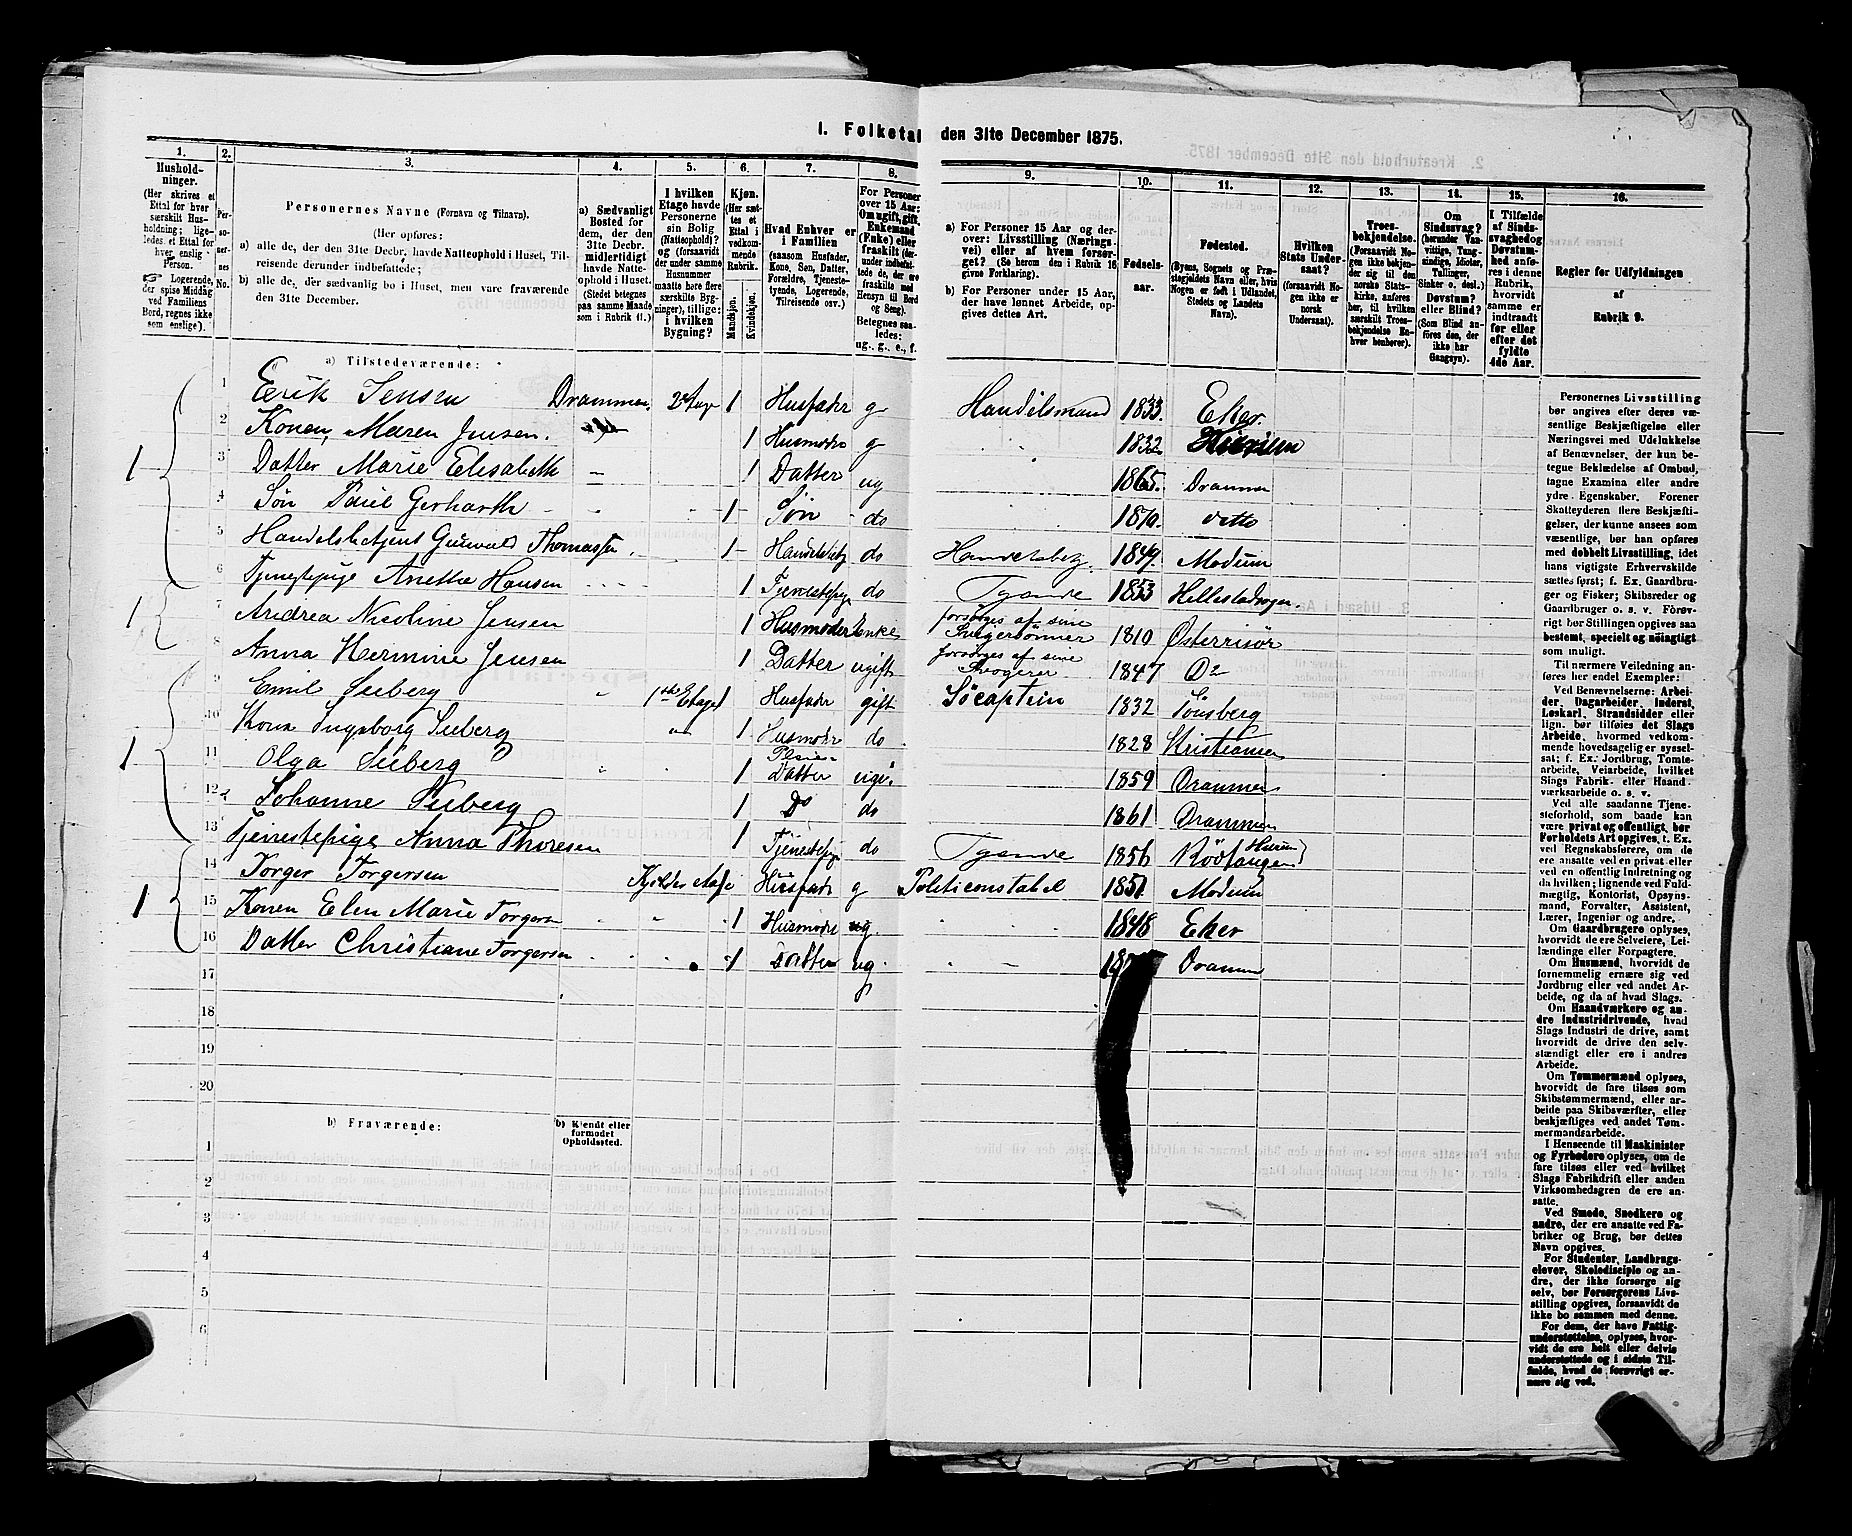 1. Folketal den 31te December 1875.
1. 2. 3. 4. 5. 6. 7. 8. 9. 10. 11. 12. 13. 14. 15. 16.
Hushold-
ninger.
(Her skrives et
Ettal for hver
særskilt Hus-
holdning; lige-
ledes et Ettal for
hver enslig
Person.
Logerende,
der spise Middag
ved Familiens
Bord, regnes ikke
som enslige).
Per-
so-
ner-
nes
No.
Personernes Navne (Fornavn og Tilnavn).
(Her opføres:
a) alle de, der den 31te Decbr. havde Natteophold i Huset, Til-
reisende derunder indbefattede;
b) alle de, der sædvanlig bo i Huset, men vare fraværende
den 31te December.
a) Sædvanligt
Bosted for
dem, der den
31te Decbr.
midlertidigt
havde Natte-
ophold i Huset.
(Stedet betegnes
paa samme Maade
som i Rubrik 11.)
I hvilken
Etage havde
Personerne
sin Bolig
(Natteophold)?
(forsaavidt
der under samme
Husnummer
maatte høre flere
særskilte Byg-
ninger), tillige:
i hvilken
Bygning?
Kjøn.
(Her sæt-
tes et
Ettal i
vedkom-
mende
Rubrik.
Mandkjøn.
Kvindekjøn.
Hvad Enhver er
i Familien
(saasom Husfader,
Kone, Søn, Datter,
Forældre, Tjeneste-
tyende, Logerende,
Tilreisende osv.)
For Personer
over 15 Aar:
Om ugift, gift,
Enkemand
(Enke) eller
fraskilt (der-
under indbefat-
tede de, der ere
fraskilte med
Hensyn til Bord
og Seng).
Betegnes saa-
ledes:
ug., g., e., f.
a) For Personer 15 Aar og der-
over: Livsstilling (Nærings-
vei) eller af hvem forsør-
get? (Se herom den i Rubrik 16
givne Forklaring).
b) For Personer under 15 Aar,
der have lønnet Arbeide, op-
gives dettes Art.
Fødsels-
aar.
Fødested.
(Byens, Sognets og Præ-
stegjeldets Navn eller, hvis
Nogen er født i Udlandet,
Stedets og Landets
Navn).
Hvilken
Stats Under-
saat?
(forsaavidt No-
gen ikke er
norsk
Undersaat).
Troes-
bekjendelse.
(Forsaavidt No-
gen ikke bekjen-
der sig til den
norske Stats-
kirke, anføres
her, til hvilken
særskilt Troes-
bekjendelse En-
hver henhører).
Om
Sindssvag?
(herunder Van-
vittige, Tung-
sindige, Idioter,
Tullinger,
Sinker o. desl.)
Døvstum?
eller Blind?
(Som Blind an-
føres den, der
ikke har
Gangsyn).
I Tilfælde
af Sinds-
svaghed og
Døvstum-
hed anfø-
res i denne
Rubrik,
hvorvidt
samme er
indtraadt
før eller
efter det
fyldte
4de Aar.
Regler for Udfyldningen
af
Rubrik 9.
a) Tilstedeværende:
1 1 Eerik Jensen Drammen. 2 Etage 1 Husfader g Handelsmand 1833. Eker
2 Konen, Maren Jensen. 1 Husmoder g 1832
3 Datter Marie Elisabeth 1 Datter ug 1865. Drammen
4 Søn Paul Gerharth 1 Søn do 1870. ditto
5 Handelsbetjent Gunvald Thomassen 1 Handelsbetj do Handelsbetj. 1849. Modum
6 Tjenestepige Anethe Hansen 1 Tjenestepige do Tyende 1853 Hellestadvogn.
1 7 Andrea Nicoline Jensen 1 Husmoder Enke forsørges af sine Svigersønner 1810 Østerrisør
Anna Hermine Jensen 1 Datter ugift forsørges af sine Svogere 1847 Do
1 9 Emil Seeberg 1ste Etage 1 Husfader gift Søcaptein 1832 Tønsberg
10 Kona Ingeborg Seeberg 1 Husmoder do 1828 Kristiansen
11 Olga Seeberg 1 Pleie Datter ugi. 1859 Drammen
12 Johanne Seeberg 1 Do do 1861 Drammen
13 Tjenestepige Anna Thoresen 1 Tjenestepige do Tyende 1856 Rødtangen (Hurum)
1 14 Torger Torgersen Kjelder Etage 1 Husfader g Politiconstabel 1851 Modum
15 Konen Elen Marie Torgersen 1 Husmoder ug 1848 Eker
16 Datter Christiane Torgersen 1 Datter ug Drammen
17
18
19
20
b) Fraværende:
b) Kjendt eller
formodet
Opholdssted.
1
2
3
4
5
6
Personernes Livsstilling
bør angives efter deres væ-
sentlige Beskjæftigelse eller
Næringsvei med Udelukkelse
af Benævnelser, der kun be-
tegne Beklædelse af Ombud,
tagne Examina eller andre
ydre Egenskaber. Forener
Skatteyderen flere Beskjæfti-
gelser, der kunne ansees som
væsentlige, bør han opføres
med dobbelt Livsstilling, idet
hans vigtigste Erhvervskilde
sættes først; f. Ex. Gaardbru-
ger og Fisker; Skibsreder og
Gaardbruger o. s. v. Forøv-
rigt bør Stillingen opgives saa
bestemt, specielt og nøiagtigt
som muligt.
Til nærmere Veiledning an-
føres her endel Exempler:
Ved Benævnelserne: Arbei-
der, Dagarbeider, Inderst,
Løskarl, Strandsidder eller
lign. bør tilføies det Slags
Arbeide, hvormed vedkom-
mende hovedsagelig er syssel-
sat; f. Ex. Jordbrug, Tomte-
arbeide, Veiarbeide, hvilket
Slags Fabrik- eller Haand-
værksarbeide o. s. v.
Ved alle saadanne Tjene-
steforhold, som baade kan
være privat og offentligt, bør
Forholdets Art opgives, f. Ex.
ved Regnskabsførere, om de
ere ansatte ved en privat eller
en offentlig Indretning og da
hvilken; lignende ved Fuld-
mægtig, Kontorist, Opsyns-
mand, Forvalter, Assistent,
Lærer, Ingeniør og andre.
Om Gaardbrugere oplyses,
hvorvidt de ere Selveiere, Lei-
lændinge eller Forpagtere.
Om Husmænd, hvorvidt de
fornemmelig ernære sig ved
Jordbrug eller ved andet Ar-
beide, og da af hvad Slags.
Om Haandværkere og an-
dre Industridrivende, hvad
Slags Industri de drive, samt
hvorvidt de drive den selv-
stændigt eller ere i andres
Arbeide.
Om Tømmermænd oplyses,
hvorvidt de fare tilsøs som
Skibstømmermænd, eller ar-
beide paa Skibsværfter, eller
beskjæftiges ved andet Tøm-
mermandsarbeide.
I Henseende til Maskinister
og Fyrbødere oplyses, om de
fare tilsøs eller ved hvilket
Slags Fabrikdrift eller anden
Virksomhedsgren de ere an-
satte.
Ved Smede, Snedkere og
andre, der ere ansatte ved Fa-
briker og Brug, bør dettes
Navn opgives.
For Studenter, Landbrugs-
elever, Skoledisciple og an-
dre, der ikke forsørge sig
selv, bør Forsørgerens Livs-
stilling opgives, forsaavidt de
ikke bo sammen med denne.
For dem, der have Fattig-
understøttelse, oplyses, hvor-
vidt de ere helt eller delvis
understøttede og i sidste Til-
fælde, hvad de forøvrigt er-
nære sig ved.